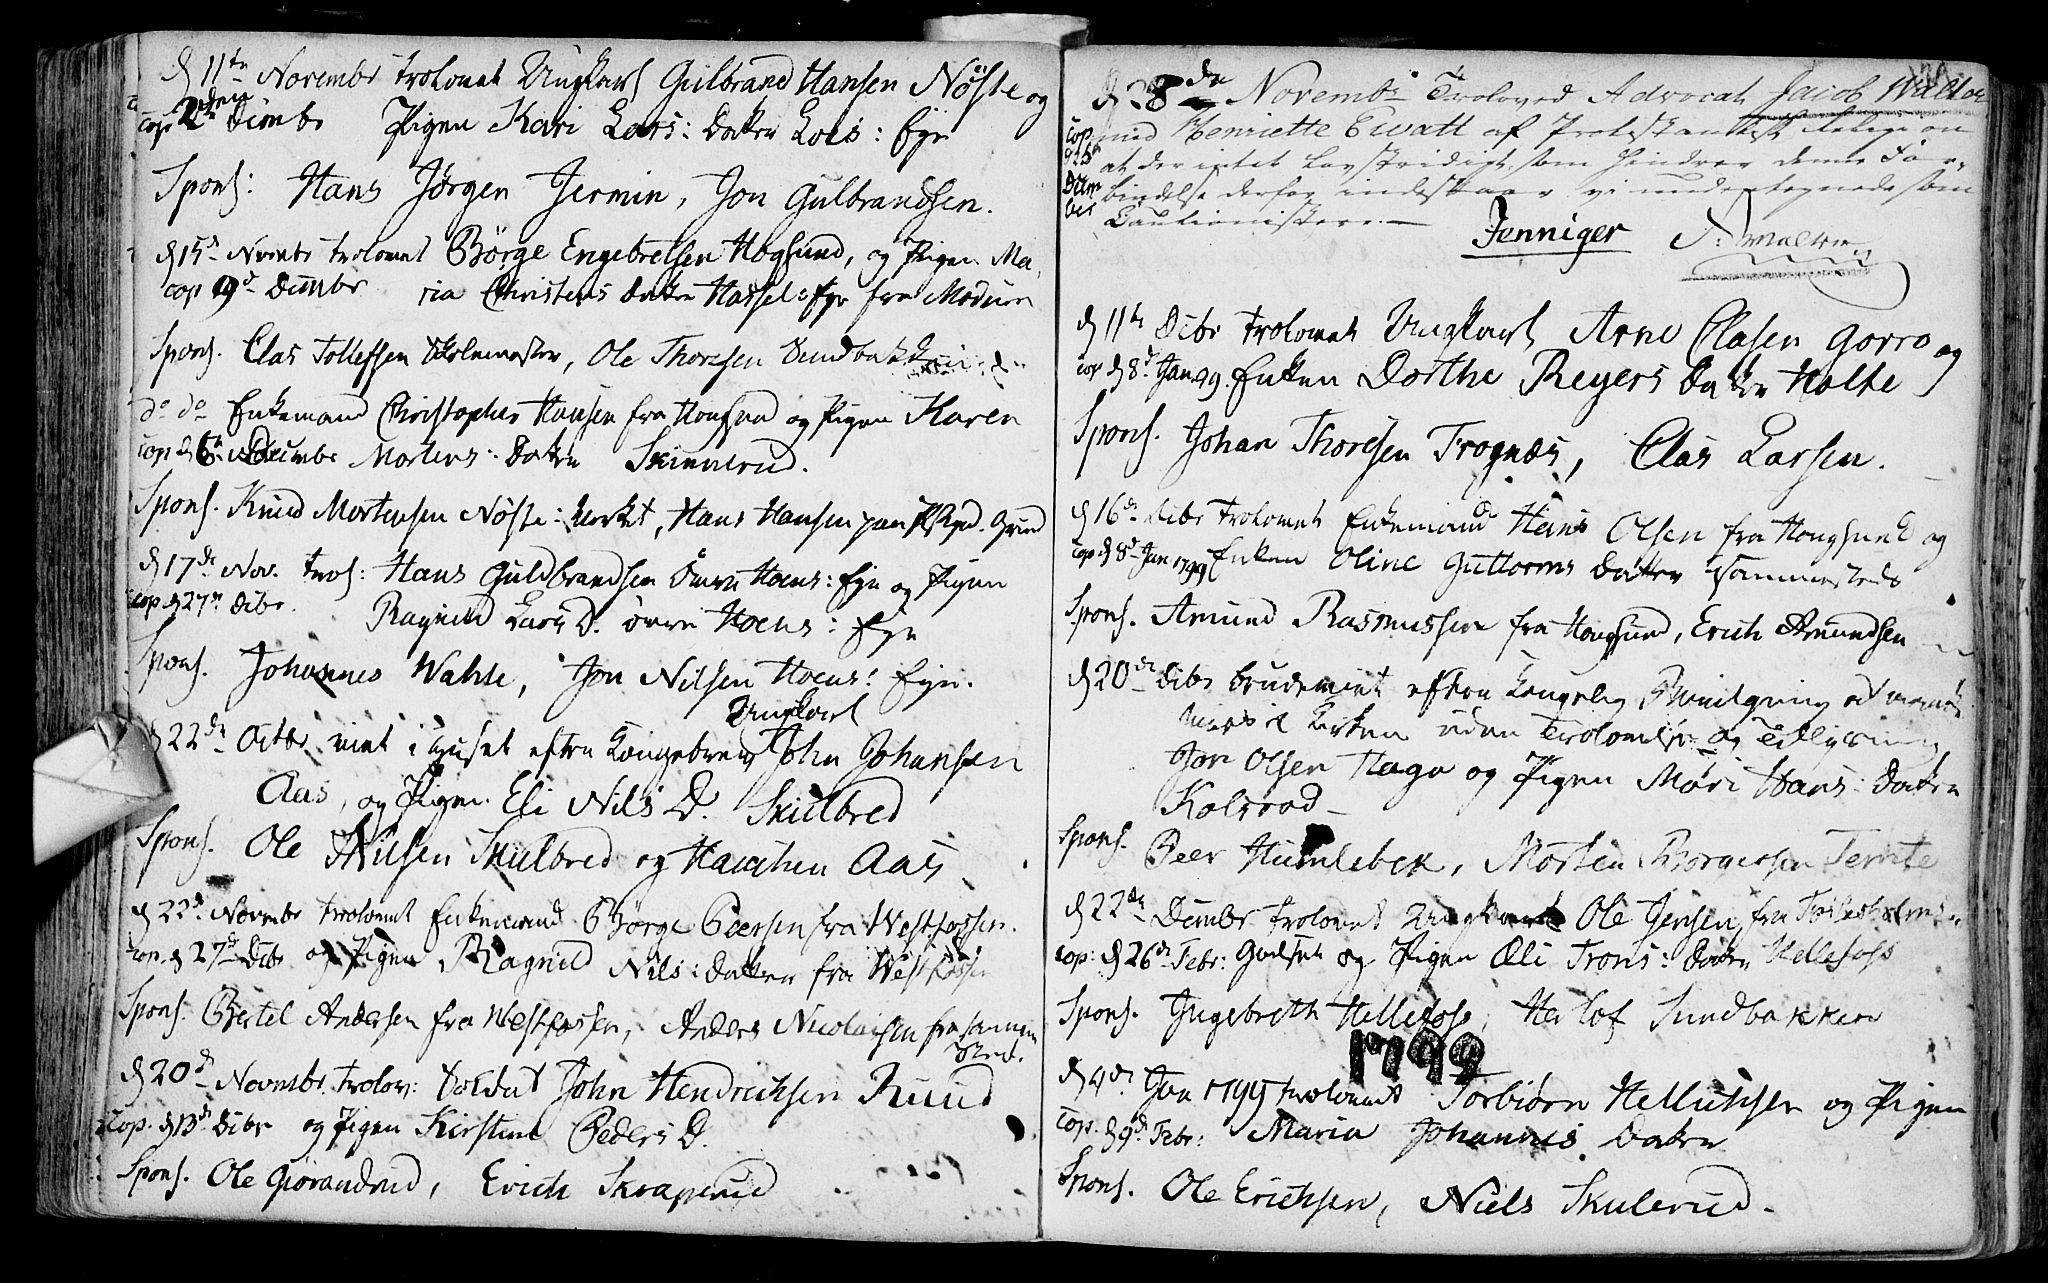 d 11te Novembr trolovet Ungkarl Gulbrand Hansen Nøste og
cop 2den Decembr Pigen Kari Lars: Datter Loes: Eye
Spons: Hans Jørgen Jermin, Jon Gulbrandsen.
d 15d Novembr trolovet Børge Engebretsen Hogsund, og Pigen Ma,
cop 9d Decembr ria Christens Datter Hassel: Eye fra Modum
Spons. Clas Tollefsen Skolemester, Ole Thoresen Sundbakken
do do Enkemand Christopher Hansen fra Hougsund og Pigen Karen
cop d 6te Decembr Mortens: Datter Skinnerud.
Spons. Knud Mortensen Nøste: Værket, Hans Hansen Grund
d 17de Nov. trol: Hans Guldbrandsen Øvre Hoens: Eye og Pigen
cop d 27de Decbr. Ragnild Lars D. øvre Hoens: Eye
Spons. Johannes Wahle, Jon Nilsen Hoens: Eye.
Ungkarl
d 22de Octbr viet i Huset efter Kongebrev John Johansen
Aas, og Pigen Eli Nils D. Skulbred
Spons. Ole Nilsen Skulbred og Haachen Aas
d 22d. Novembr trolovet Enkemand Børge Peersen fra Westfossen.
cop. d 27de Decbr og Pigen Ragnild Nils: Datter fra Westfossen
Spons. Bertel Andersen fra Westfossen, Anders Nicolaisen fra sammen
Sted.
d 20d Novembr. trolov: Soldat John Hendrichsen Ruud
cop. d 13d Decbr og Pigen Kirstine Peders D.
Spons. Ole Giorandrud, Erich Skraperud
d 28de Novembr Troloved Advocat Jacob Walter
cop med Henriette Ewatt af Protestantisk Religion
at der intet Lovstridigt som hindrer denne For-
Decem bindelse derfor indestaaer vi undertegnede som
ber Cautionister.
Jenniger Walter
d 11te Decbr trolovet Ungkarl Arne Clasen Gorro og
cop d 8d Jan 99. Enken Dorthe Reyers Datter Holte
Spons. Johan Thoresen Trognæs, Clas Larsen.
d 16d. Decbr trolovet Enkemand Hans Olsen fra Hougsund og
cop d 8d Jan 1799 Enken Oline Guttorms Datter sammesteds
Spons. Amund Rasmussen fra Hougsund, Erich Amundsen
d 20de Decbr Brudeviet efter Kongelig Bevilgning
Kirken uden Trolovelse og Tillysning
Jon Olsen Haga og Pigen Mari Hans: Datter
Kolsrod
Spons. Peer Humlebek, Morten Børgersen Temte
d 22de Decembr trolovet Ungkarl Ole Jensen fra
cop: d 26de Febr: Godset og Pigen Eli Trons: Datter Hellefoss
Spons. Ingebreth Hellefoss, Herlof Sundbakken
1799
d 4de Jan 1799 trolovet Torbiørn Hellichsen og Pigen
cop. d 9d Febr: Maria Johannis Datter
Spons. Ole Erichsen, Niels Skulerud.